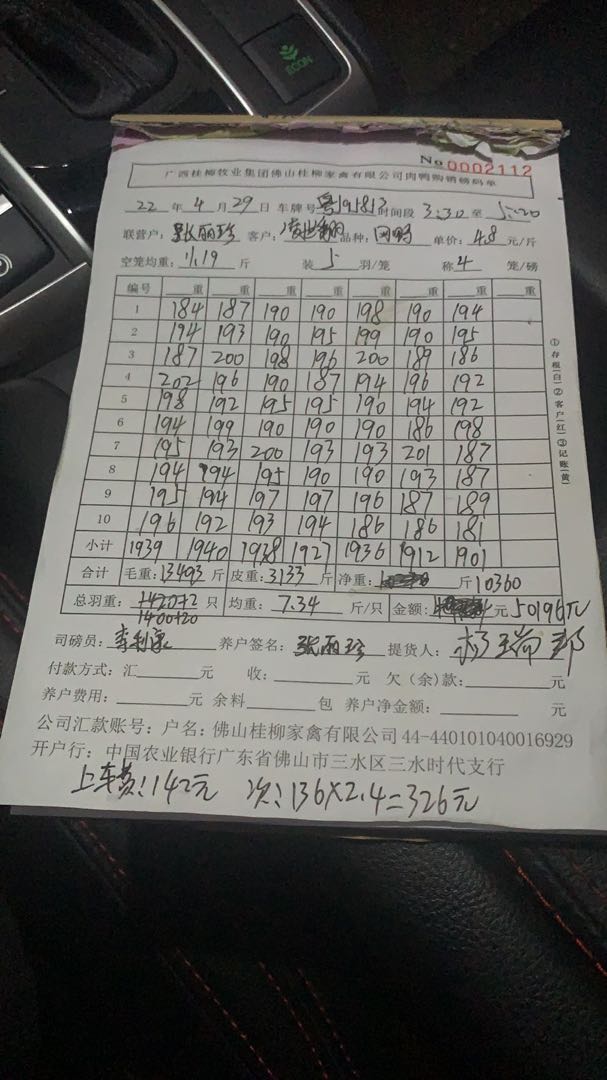 ECON
No 0002112
广西桂柳牧业集团佛山桂柳家禽有限公司肉鸭购销磅码单
22 年 4 月 29 日 车牌号 时间段 3:30 至 5:20
联营户: 张丽珍 客户: 品种: 单价: 4.8 元/斤
空笼均重: 11.19 斤 装 5 羽/笼 称 4 笼/磅
编号 重 重 重 重 重 重 重 重
1 184 187 190 190 198 190 194
2 194 193 190 195 199 190 195
3 187 200 198 196 200 189 186
4 202 196 190 187 194 196 192
5 198 192 195 195 190 194 192
6 194 199 190 190 190 186 198
7 195 193 200 193 193 201 187
8 194 194 195 190 190 193 187
9 195 194 197 197 196 187 189
10 196 192 193 194 186 186 181
小计 1939 1940 1938 1927 1936 1912 1901
合计 毛重: 13493 斤 皮重: 3133 斤 净重: 斤 10360
总羽重: 1420+2 只 均重: 7.34 斤/只 金额: 元 50196元
1400+20
司磅员: 养户签名: 张丽珍 提货人:
付款方式: 汇 元 收: 元 欠(余)款: 元
养户费用: 元 余料 包 养户净金额: 元
公司汇款账号: 户名: 佛山桂柳家禽有限公司 44-440101040016929
开户行: 中国农业银行广东省佛山市三水区三水时代支行
上车费: 142元 次: 136×2.4=326元
①存根(白)②客户(红)③记账(黄)